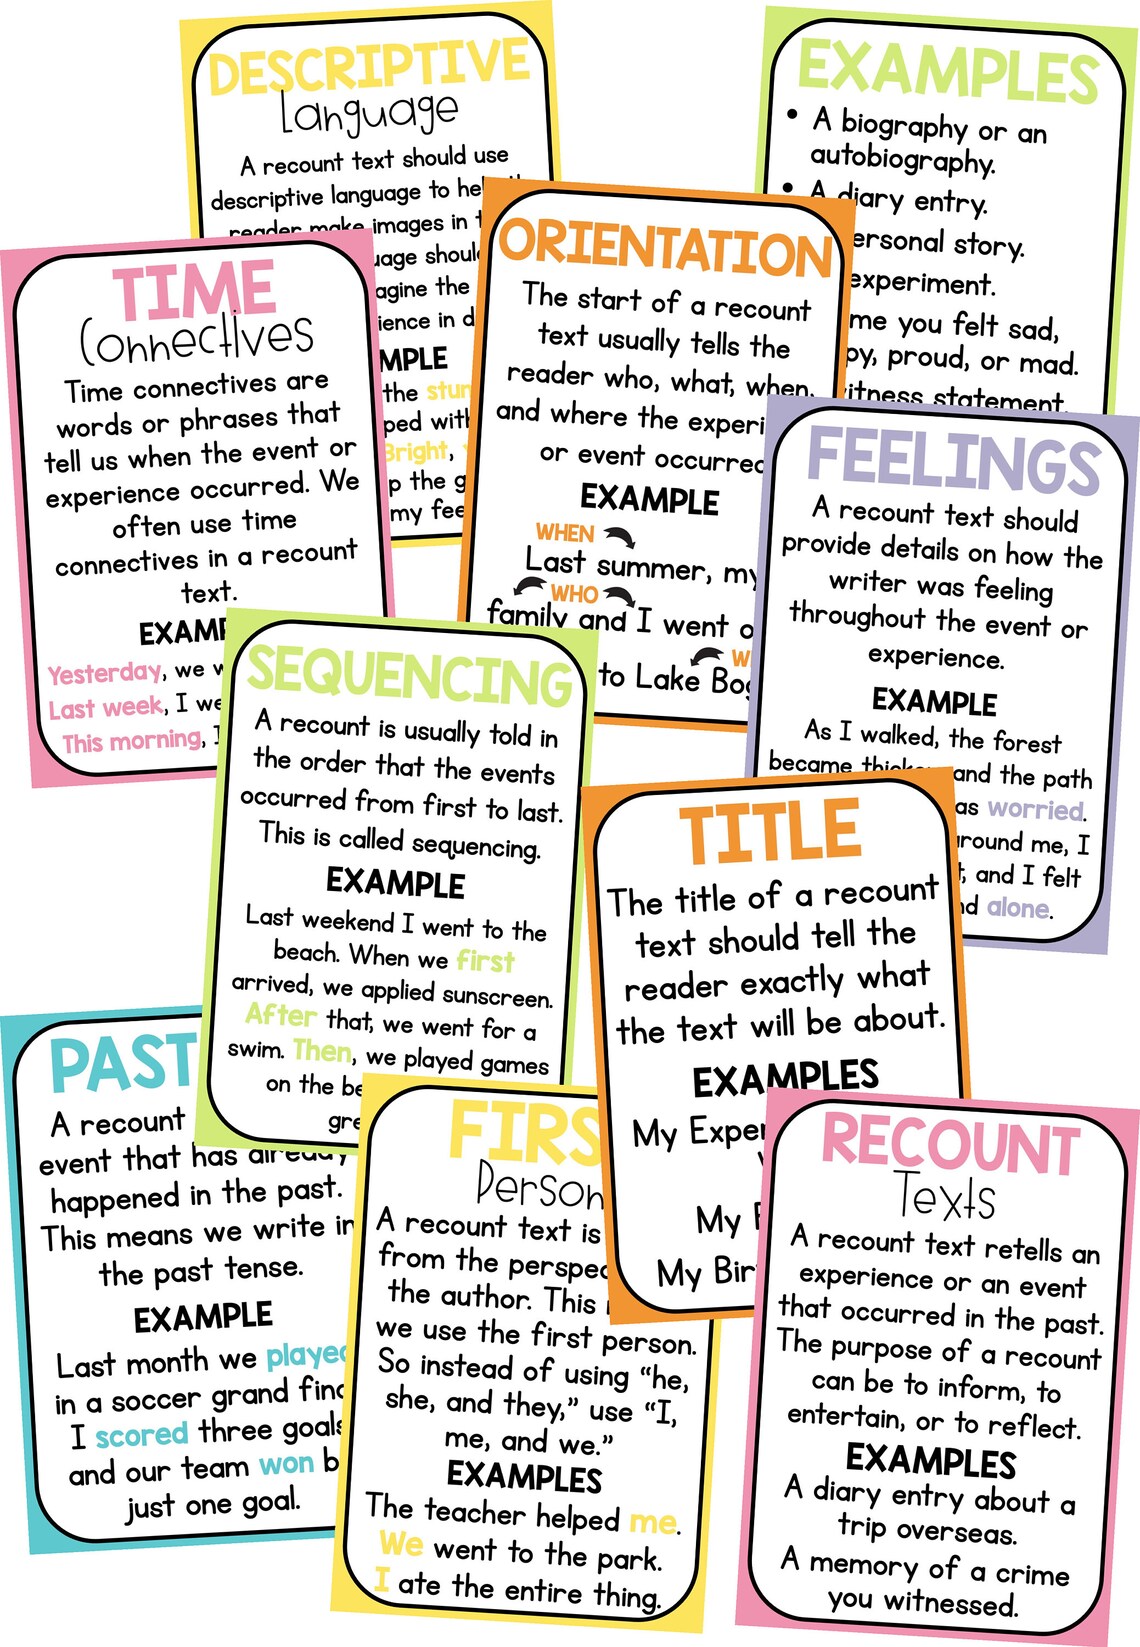 DESCRIPTIVE
Language
A recount text should use
descriptive language to
reader make images in
should
the
in
EXAMPLE
the
with
Bright,
the
my
EXAMPLES
• A biography or an
autobiography.
• A diary entry.
personal story.
experiment.
me you felt sad,
proud, or mad.
witness statement.
TIME
Connectives
Time connectives are
words or phrases that
tell us when the event or
experience occurred. We
often use time
connectives in a recount
text.
EXAMP
Yesterday, we
Last week, I
This morning,
ORIENTATION
The start of a recount
text usually tells the
reader who, what, when,
and where the
or event occurred
EXAMPLE
WHEN
Last summer, my
WHO
family and I went
W
to Lake
FEELINGS
A recount text should
provide details on how the
writer was feeling
throughout the event or
experience.
EXAMPLE
As I walked, the forest
became thicker and the path
as worried.
around me, I
and I felt
alone.
SEQUENCING
A recount is usually told in
the order that the events
occurred from first to last.
This is called sequencing.
EXAMPLE
Last weekend I went to the
beach. When we first
arrived, we applied sunscreen.
After that, we went for a
swim. Then, we played games
on the
TITLE
The title of a recount
text should tell the
reader exactly what
the text will be about.
EXAMPLES
My
My
My
PAST
A recount
event that has already
happened in the past.
This means we write in
the past tense.
EXAMPLE
Last month we played
in a soccer grand
I scored three goals
and our team won
just one goal.
FIRS
Person
A recount text is
from the
the author. This
we use the first person.
So instead of using “he,
she, and they,” use “I,
me, and we.”
EXAMPLES
The teacher helped me.
We went to the park.
I ate the entire thing.
RECOUNT
Texts
A recount text retells an
experience or an event
that occurred in the past.
The purpose of a recount
can be to inform, to
entertain, or to reflect.
EXAMPLES
A diary entry about a
trip overseas.
A memory of a crime
you witnessed.